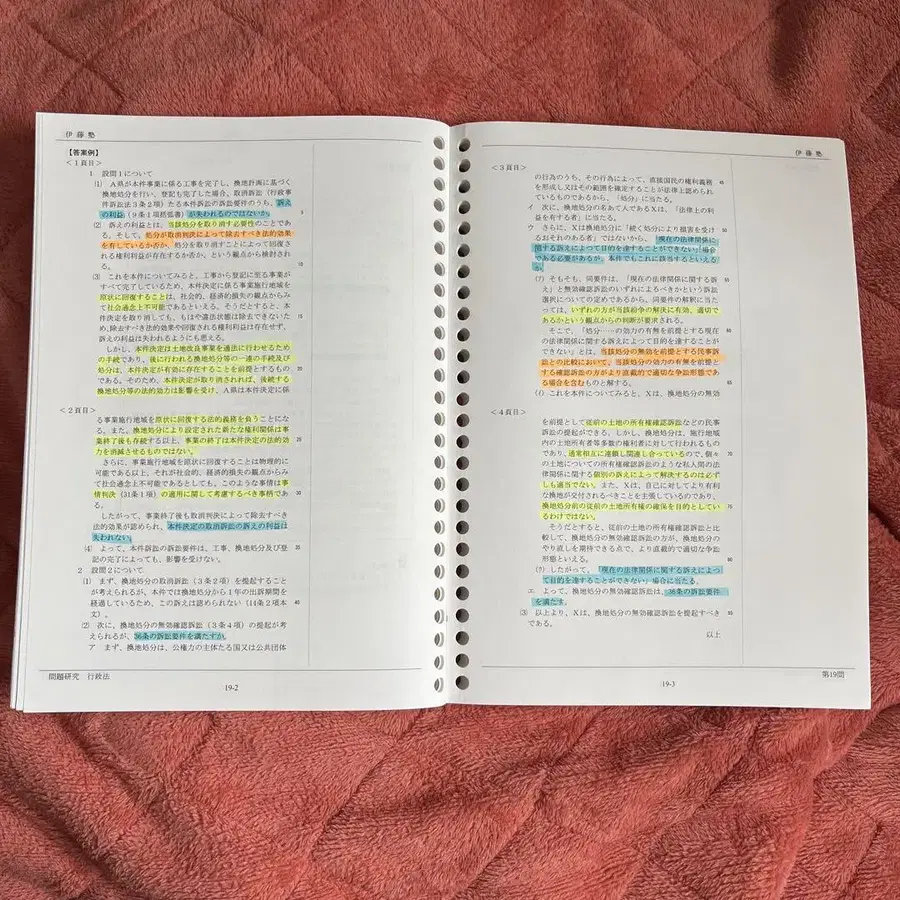 伊藤塾
【答案例】
＜1頁目＞
1　設問1について
⑴　A県が本件事業に係る工事を完了し、換地計画に基づく
換地処分を行い、登記も完了した場合、取消訴訟（行政事
件訴訟法3条2項）たる本件訴訟の訴訟要件のうち、訴え
の利益（9条1項括弧書）が失われるのではないか。 5
⑵　訴えの利益とは、当該処分を取り消す必要性のことであ
る。そして、処分が取消判決によって除去すべき法的効果
を有しているか否か、処分を取り消すことによって回復さ
れる権利利益が存在するか否か、という観点から検討され
る。 10
⑶　これを本件についてみると、工事から登記に至る事業が
すべて完了しているため、本件決定に係る事業施行地域を
原状に回復することは、社会的、経済的損失の観点からみ
て社会通念上不可能であるといえる。そうだとすると、本
件決定を取り消しても、もはや違法状態は除去できないた 15
め、除去すべき法的効果や回復される権利利益は存在せず、
訴えの利益は失われるようにも思える。
しかし、本件決定は土地改良事業を適法に行わせるため
の手続であり、後に行われる換地処分等の一連の手続及び
処分は、本件決定が有効に存在することを前提とするもの 20
である。そのため、本件決定が取り消されれば、後続する
換地処分等の法的効力は影響を受け、A県は本件決定に係
＜2頁目＞
る事業施行地域を原状に回復する法的義務を負うことにな
る。また、換地処分により設定された新たな権利関係は事
業終了後も存続する以上、事業の終了は本件決定の法的効 25
力を消滅させるものではない。
さらに、事業施行地域を原状に回復することは物理的に
可能である以上、それが社会的、経済的損失の観点からみ
て社会通念上不可能であるとしても、このような事情は事
情判決（31条1項）の適用に関して考慮するべき事柄であ 30
る。
したがって、事業終了後も取消判決によって除去すべき
法的効果が認められ、本件決定の取消訴訟の訴えの利益は
失われない。
⑷　よって、本件訴訟の訴訟要件は、工事、換地処分及び登 35
記の完了によっても、影響を受けない。
2　設問2について
⑴　まず、換地処分の取消訴訟（3条2項）を提起すること
が考えられるが、本件では換地処分から1年の出訴期間を
経過しているため、この訴えは認められない（14条2項本 40
文）。
⑵　次に、換地処分の無効確認訴訟（3条4項）の提起が考
えられるが、36条の訴訟要件を満たすか。
ア　まず、換地処分は、公権力の主体たる国又は公共団体
問題研究　行政法
19-2
伊藤塾
＜3頁目＞
の行為のうち、その行為によって、直接国民の権利義務 45
を形成し又はその範囲を確定することが法律上認められ
ているものであるから、「処分」に当たる。
イ　次に、換地処分の名あて人であるXは、「法律上の利
益を有する者」に当たる。
ウ　さらに、Xは換地処分に「続く処分により損害を受け 50
るおそれのある者」ではないから、「現在の法律関係に
関する訴えによって目的を達することができない」場合
である必要があるが、本件でもこれに該当するといえる
か。
(ｱ)　そもそも、同要件は、「現在の法律関係に関する訴 55
え」と無効確認訴訟のいずれによるべきかという訴訟
選択についての定めであるから、同要件の解釈に当た
っては、いずれの方が当該紛争の解決に有効、適切で
あるかという観点からの判断が要求される。
そこで、「処分……の効力の有無を前提とする現在 60
の法律関係に関する訴えによって目的を達することが
できない」とは、当該処分の無効を前提とする民事訴
訟との比較において、当該処分の効力の有無を前提と
する確認訴訟の方がより直截的で適切な争訟形態であ
る場合を含むものと解する。 65
(ｲ)　これを本件についてみると、Xは、換地処分の無効
＜4頁目＞
を前提として従前の土地の所有権確認訴訟などの民事
訴訟の提起ができる。しかし、換地処分は、施行地域
内の土地所有者等多数の権利者に対して行われるもの
であり、通常相互に連鎖し関連し合っているので、個々 70
の土地についての所有権確認訴訟のような私人間の法
律関係に関する個別の訴えによって解決するのは必ず
しも適当でない。また、Xは、自己に対してより有利
な換地が交付されるべきことを主張しているのであり、
換地処分前の従前の土地所有権の確保を目的としてい 75
るわけではない。
そうだとすると、従前の土地の所有権確認訴訟と比
較して、換地処分の無効確認訴訟の方が、換地処分の
やり直しを期待できる点で、より直截的で適切な争訟
形態といえる。 80
(ｳ)　したがって、「現在の法律関係に関する訴えによっ
て目的を達することができない」場合に当たる。
エ　よって、換地処分の無効確認訴訟は、36条の訴訟要件
を満たす。
⑶　以上より、Xは、換地処分の無効確認訴訟を提起すべき 85
である。
以上
第19問
19-3